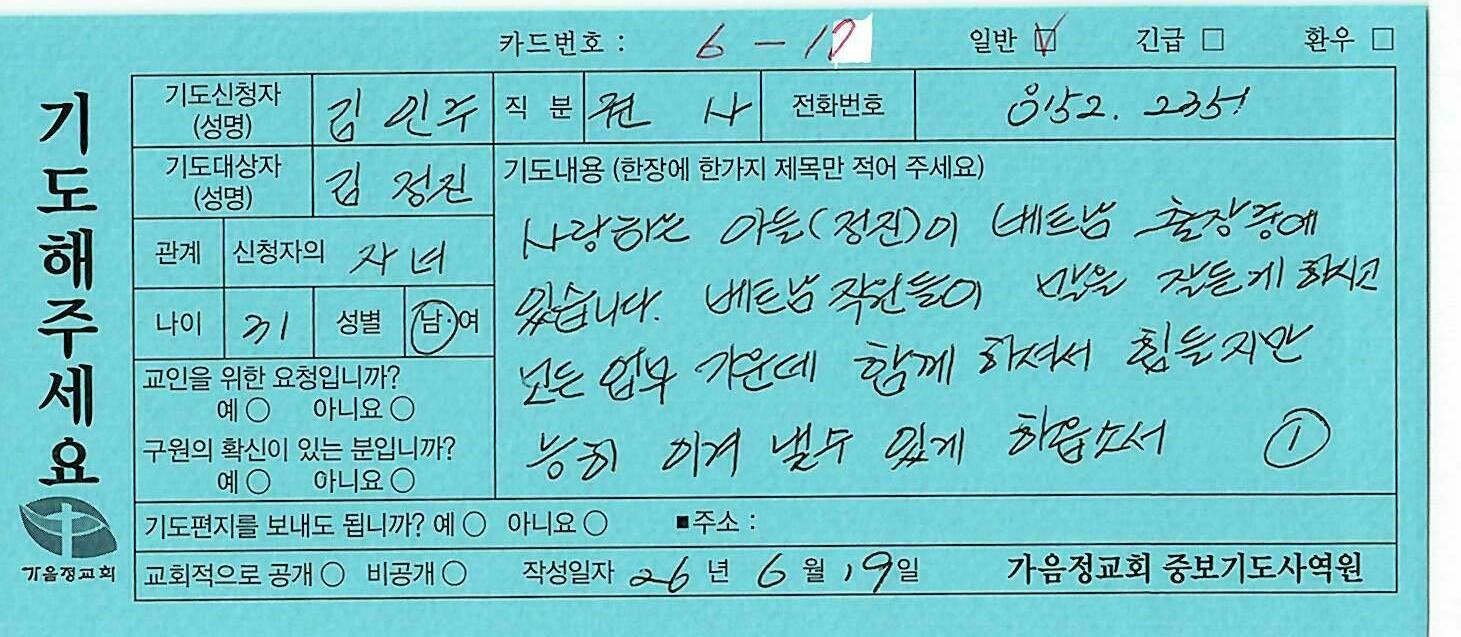 카드번호 : 6 - 17 일반 ☑ 긴급 □ 환우 □
기도해주세요
기도신청자 (성명) 김 인주 직 분 권 사 전화번호 0152. 2351
기도대상자 (성명) 김 정진
관계 신청자의 자녀
나이 31 성별 남·여
교인을 위한 요청입니까?
예 ○ 아니요 ○
구원의 확신이 있는 분입니까?
예 ○ 아니요 ○
기도내용 (한장에 한가지 제목만 적어 주세요)
사랑하는 아들(정진)이 베트남 출장중에
있습니다. 베트남 직원들이 말을 잘듣게 하시고
모든 업무 가운데 함께 하셔서 힘들지만
능히 이겨 낼수 있게 하옵소서 ①
기도편지를 보내도 됩니까? 예 ○ 아니요 ○ ■주소 :
교회적으로 공개 ○ 비공개 ○ 작성일자 26 년 6 월 19 일 가음정교회 중보기도사역원
가음정교회